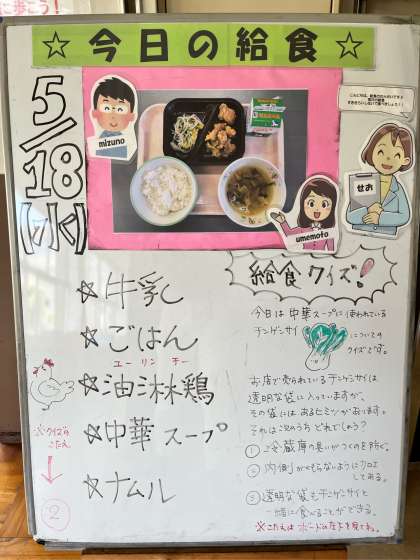 ☆今日の給食☆
5/18(水)
mizuno
umemoto
せお
☆牛乳
☆ごはん
ユーリンチー
☆油淋鶏
☆中華スープ
☆ナムル
※クイズの
こたえ
↓
②
給食クイズ!
今日は中華スープに使われている
チンゲンサイ
についての
クイズです。
お店で売られているチンゲンサイは
透明な袋に入っていますが、
その袋にはあるヒミツがあります。
それは次のうちどれでしょう?
① 冷蔵庫の臭いがつくのを防ぐ。
② 内側がくもらないように加工
してある。
③ 透明な袋もチンゲンサイと
一緒に食べることができる。
※こたえはボードの左下を見てね。